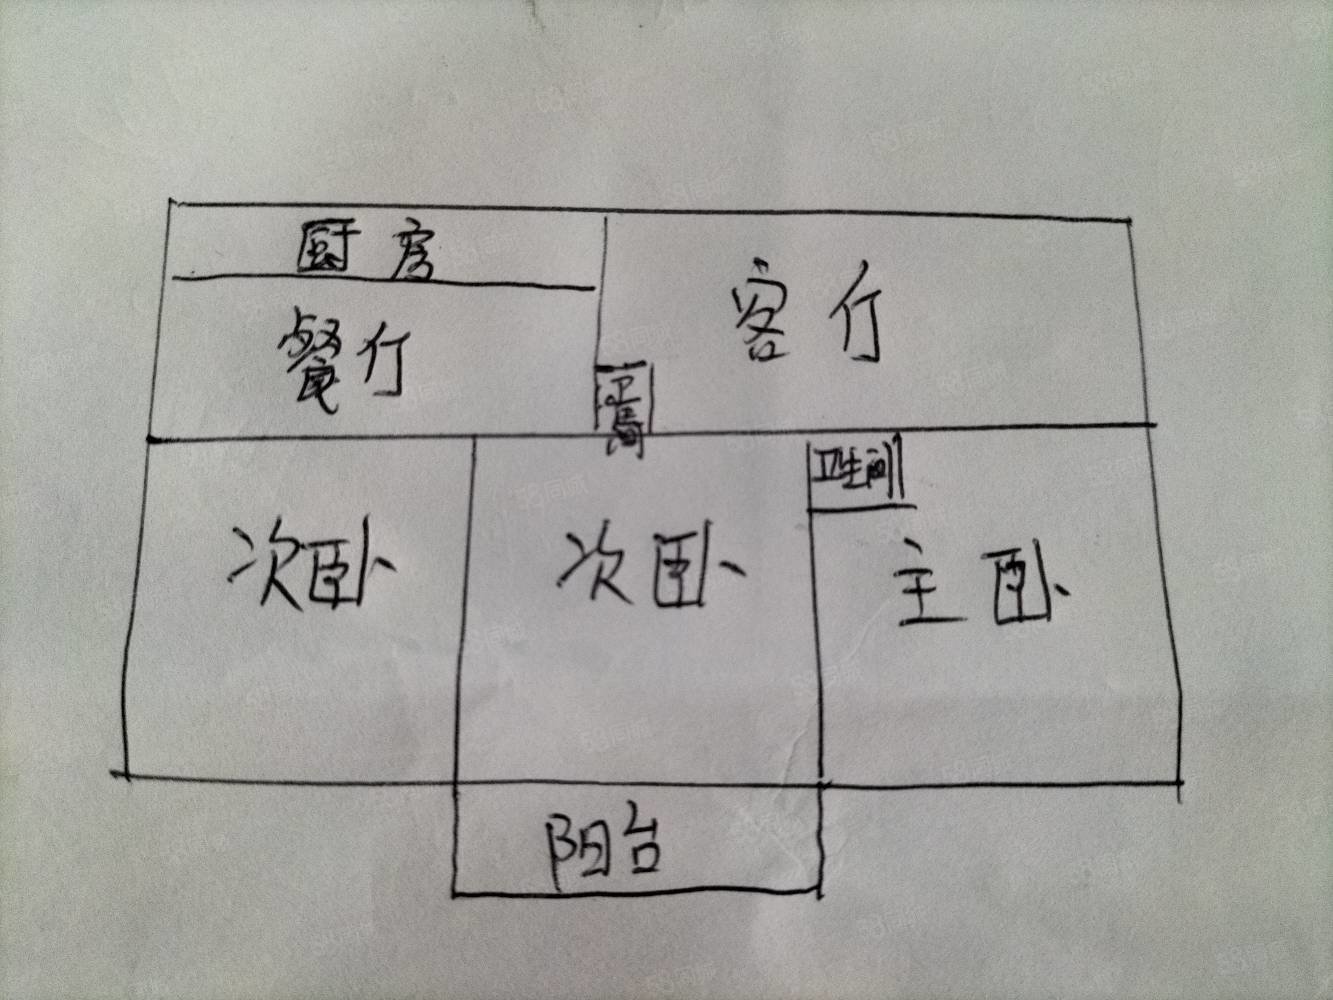 厨房
客厅
餐厅
卫生间
卫生间
次卧
次卧
主卧
阳台
58同城